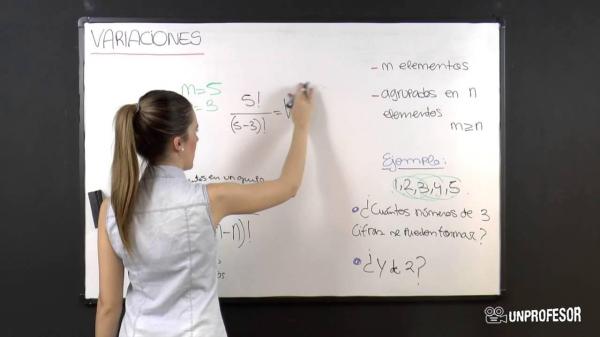 VARIACIONES
m=5
= 3
5!
(5-3)!
=
en un conjunto
-n)!
- m elementos
- agrupados en n
elementos
m≥n
Ejemplo:
1,2,3,4,5
¿Cuántos números de 3
cifras se pueden formar?
¿Y de 2?
UNPROFESOR